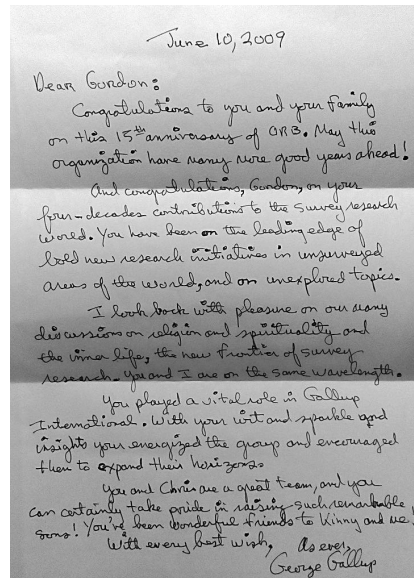 June 10, 2009
Dear Gordon:
Congratulations to you and your family
on this 15th anniversary of ORB. May this
organization have many more good years ahead!
And congratulations, Gordon, on your
four-decades contributions to the survey research
world. You have been on the leading edge of
bold new research initiatives in unsurveyed
areas of the world, and on unexplored topics.
I look back with pleasure on our many
discussions on religion and spirituality and
the inner life, the new frontier of survey
research. You and I are on the same wavelength.
You played a vital role in Gallup
International. With your wit and sparkle and
insights your energized the group and encouraged
them to expand their horizons.
You and Chris are a great team, and you
can certainly take pride in raising such remarkable
sons! You've been wonderful friends to Kinny and me!
With every best wish, As ever,
George Gallup